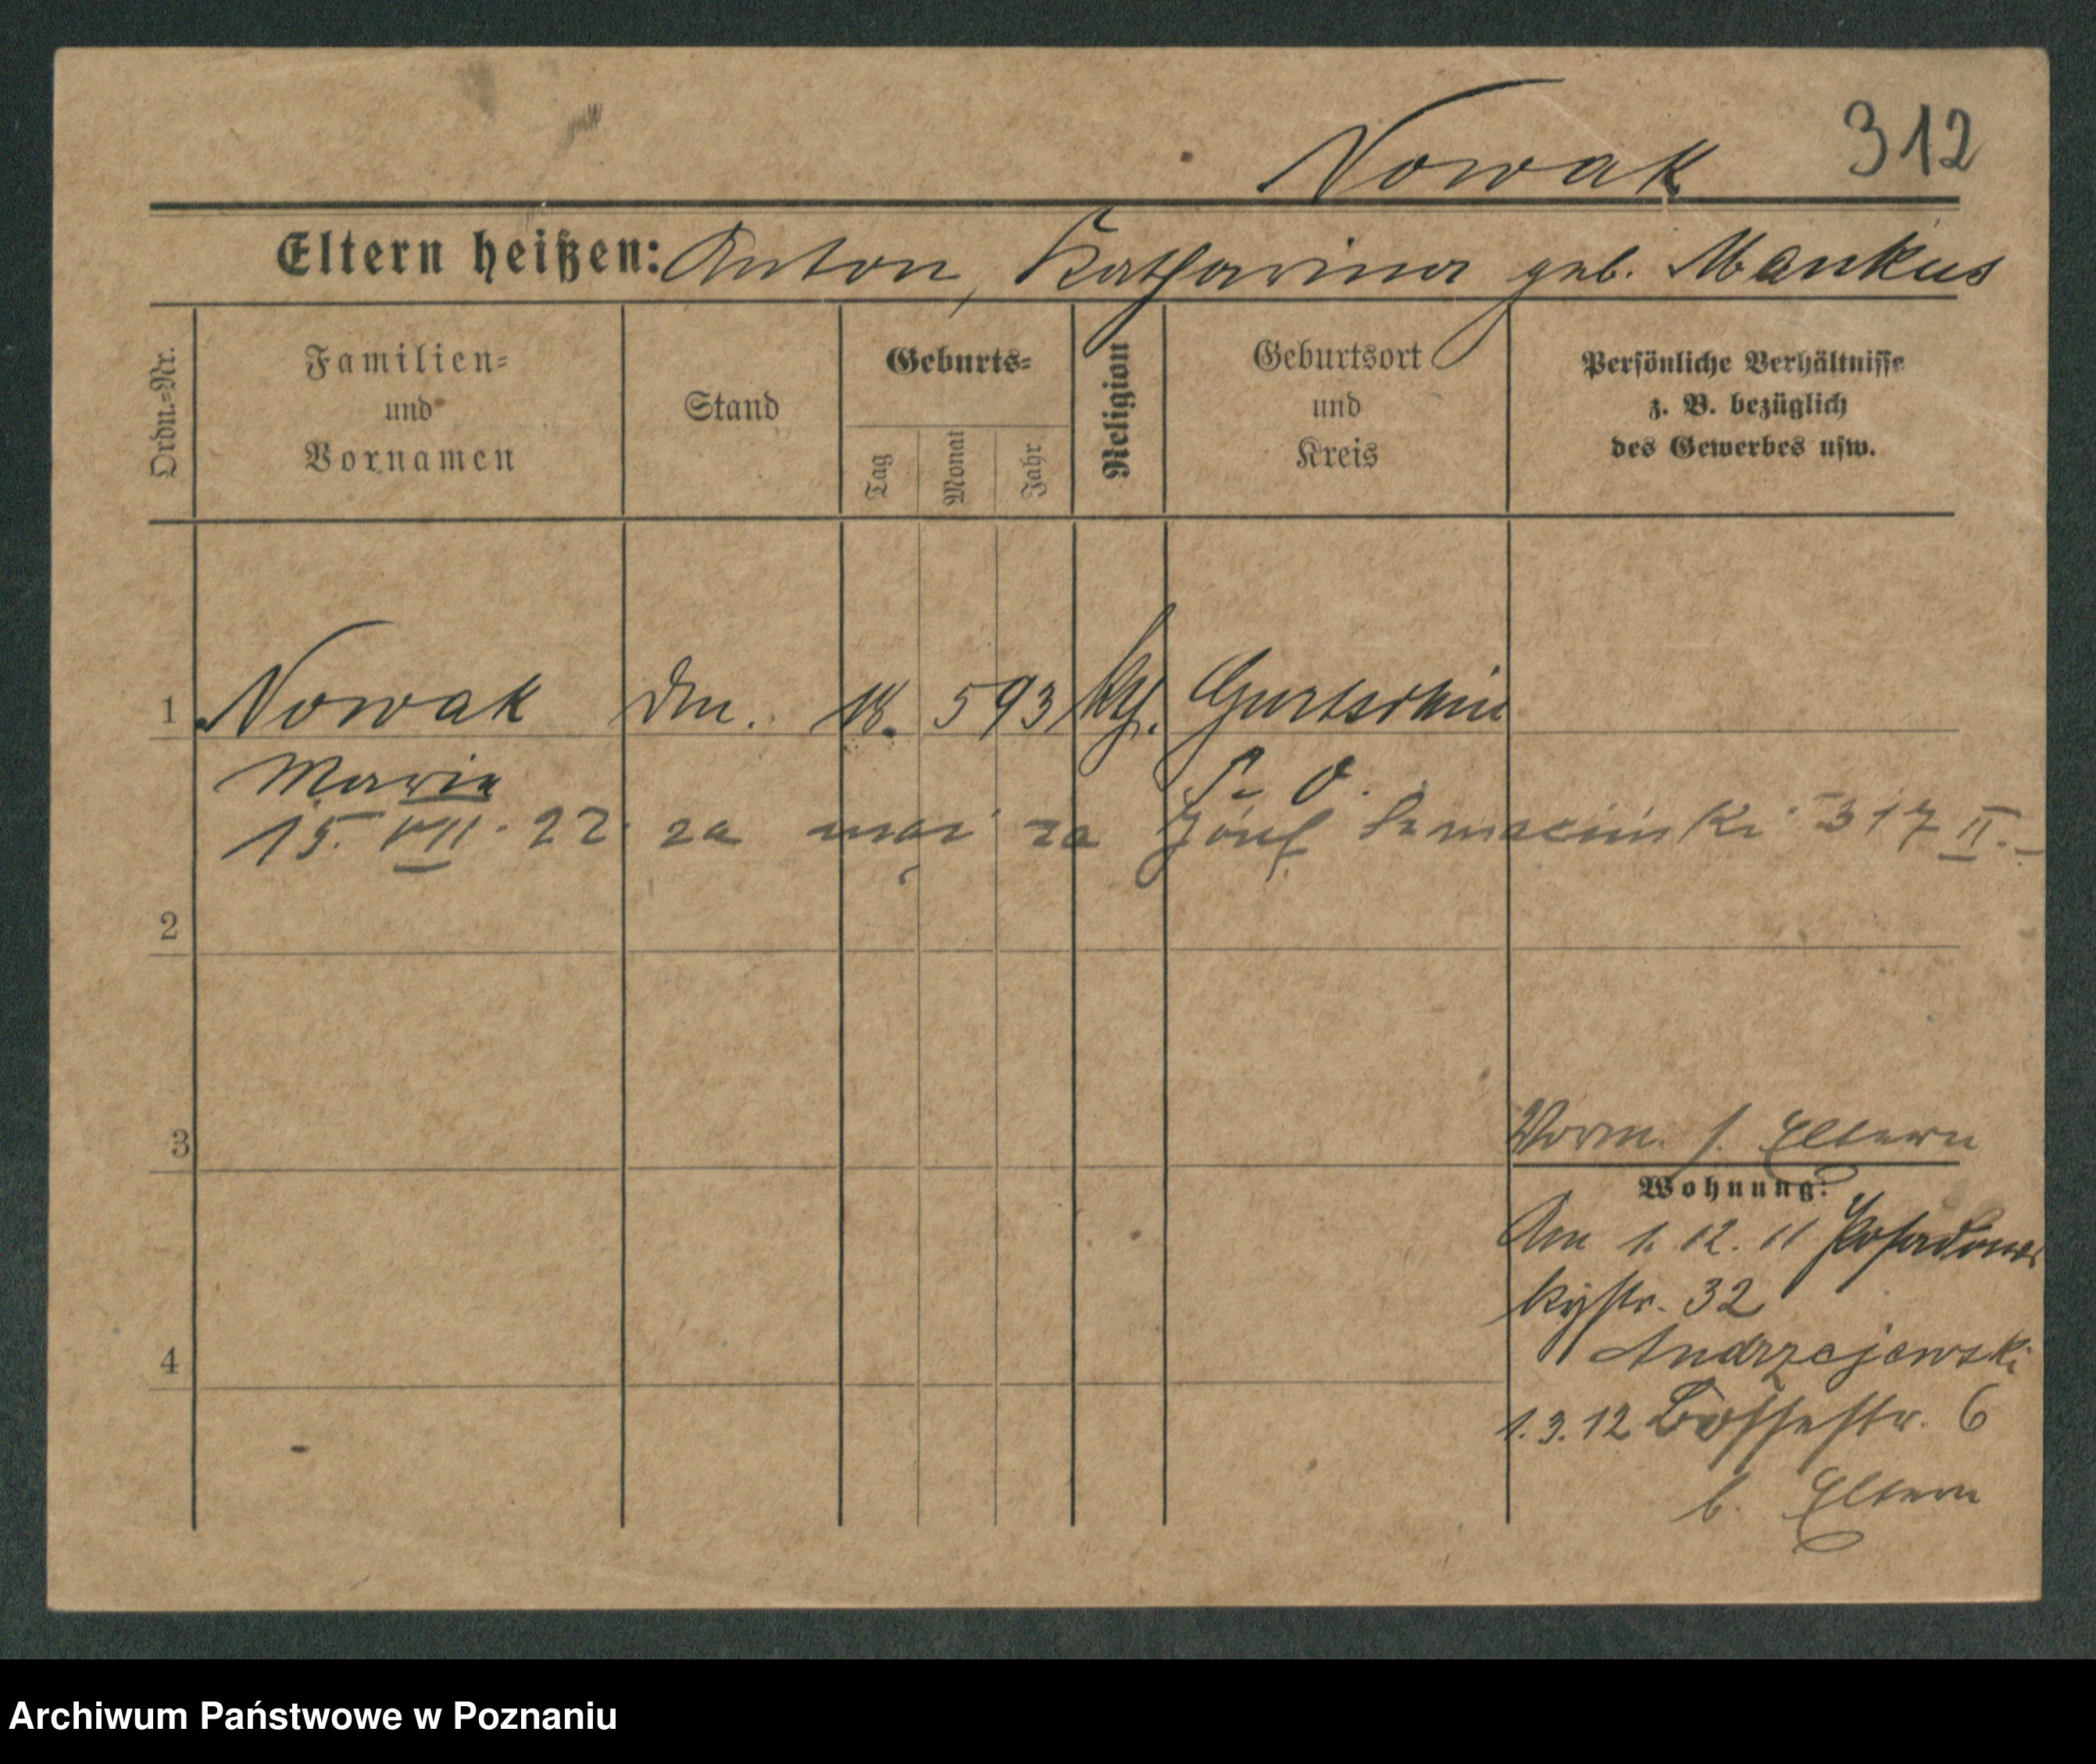 Nowak 312
Eltern heißen: Anton, Katharina geb. Mankus
Ordn.-Nr.
Familien-
und
Vornamen
Stand
Geburts-
Tag
Monat
Jahr
Religion
Geburtsort
und
Kreis
Persönliche Verhältnisse
z. B. bezüglich
des Gewerbes usw.
1 Nowak 18. 5 93 kth. Gurtschin
Maria P. O.
15. VII. 22 za mąż za Józef 317 II.
2
3
Worm. s. Eltern
Wohnung:
Am 1. 12. 11 Posadows
kystr. 32
Andrzejewski
4
1. 3. 12 Bossestr. 6
b. Eltern
Archiwum Państwowe w Poznaniu